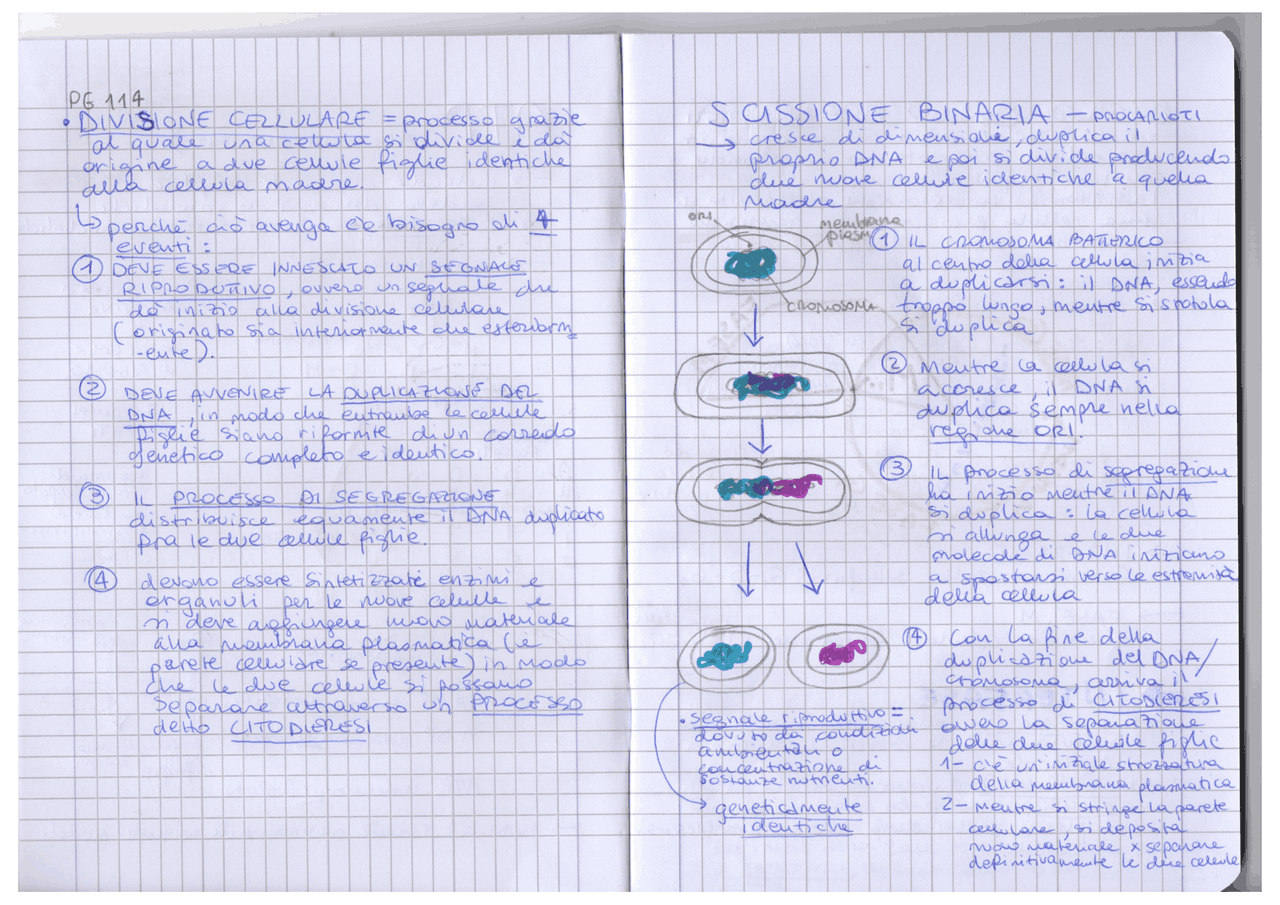 PG 114
• DIVISIONE CELLULARE = processo grazie
al quale una cellula si divide e dà
origine a due cellule figlie identiche
alla cellula madre.
↳ perché ciò avvenga c'è bisogno di 4
eventi:
1 DEVE ESSERE INNESCATO UN SEGNALE
RIPRODUTTIVO, ovvero un segnale che
dà inizio alla divisione cellulare
(originato sia interiormente che esteriorm
-ente).
2 DEVE AVVENIRE LA DUPLICAZIONE DEL
DNA, in modo che entrambe le cellule
figlie siano rifornite di un corredo
genetico completo e identico.
3 IL PROCESSO DI SEGREGAZIONE
distribuisce equamente il DNA duplicato
fra le due cellule figlie.
4 devono essere sintetizzate enzimi e
organuli per le nuove cellule e
si deve aggiungere nuovo materiale
alla membrana plasmatica (e
parete cellulare se presente) in modo
che le due cellule si possano
separare attraverso un PROCESSO
detto CITODIERESI
SCISSIONE BINARIA — PROCARIOTI
→ cresce di dimensione, duplica il
proprio DNA e poi si divide producendo
due nuove cellule identiche a quella
madre
ORI
membrana
plasm
CROMOSOMA
1 IL CROMOSOMA BATTERICO
al centro della cellula inizia
a duplicarsi: il DNA, essendo
troppo lungo, mentre si srotola
si duplica
2 Mentre la cellula si
accresce, il DNA si
duplica sempre nella
regione ORI.
3 IL processo di segregazione
ha inizio mentre il DNA
si duplica: la cellula
si allunga e le due
molecole di DNA iniziano
a spostarsi verso le estremità
della cellula
4 Con la fine della
duplicazione del DNA/
cromosoma, arriva il
processo di CITODIERESI
ovvero la separazione
delle due cellule figlie
1- c'è un'iniziale strozzatura
della membrana plasmatica
2- mentre si stringe la parete
cellulare, si deposita
nuovo materiale x separare
definitivamente le due cellule
• segnale riproduttivo =
dovuto da condizioni
ambientali o
concentrazione di
sostanze nutrienti.
→ geneticamente
identiche